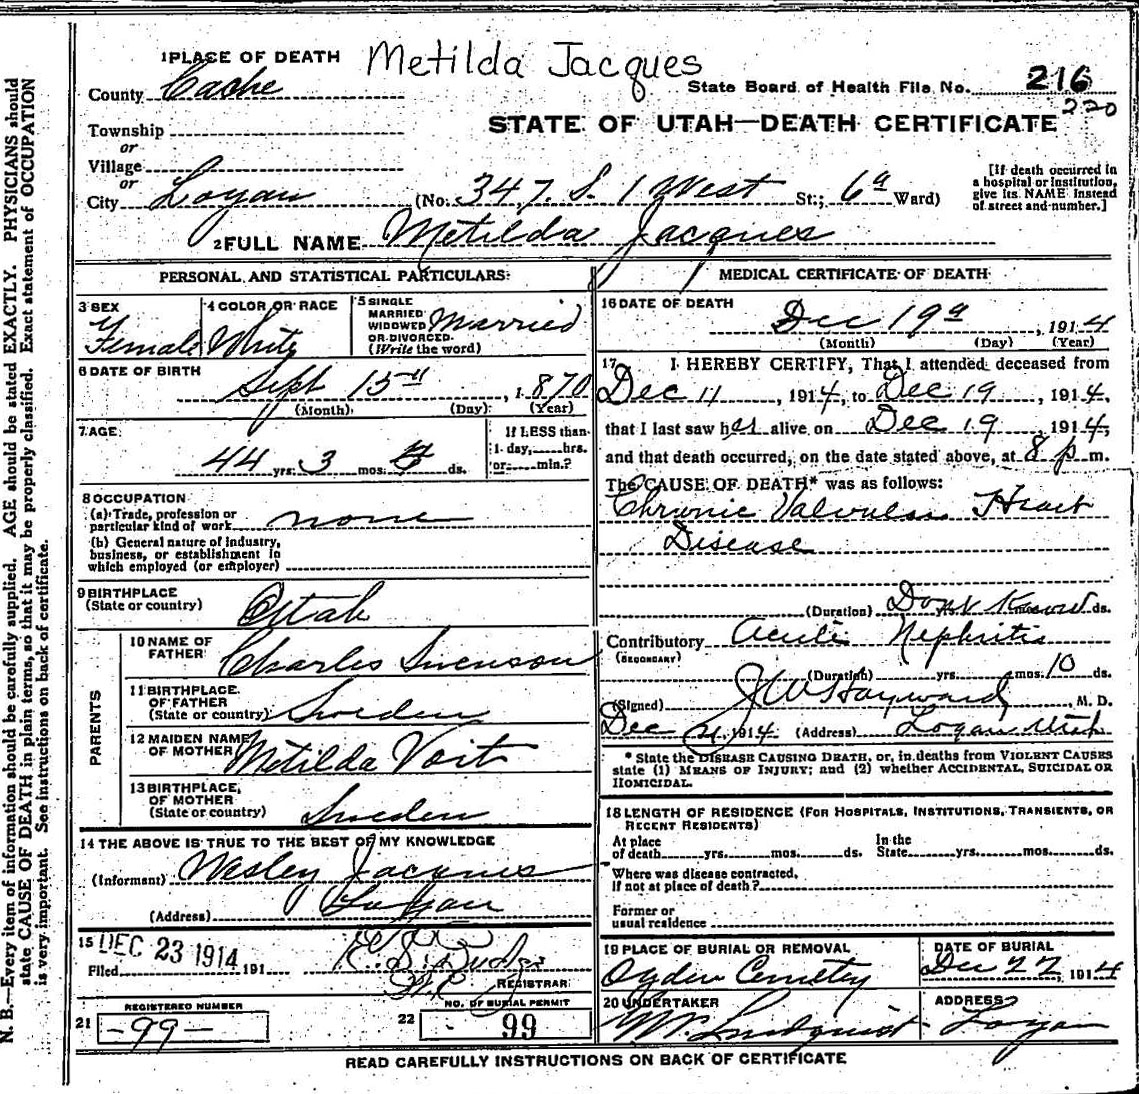 1 PLACE OF DEATH Metilda Jacques
County Cache State Board of Health File No. 216
220
STATE OF UTAH—DEATH CERTIFICATE
Township
or
Village
or
City Logan (No. 347. S. 1 West St.; 6 Ward)
[If death occurred in
a hospital or institution,
give its NAME instead
of street and number.]
2 FULL NAME Metilda Jacques
PERSONAL AND STATISTICAL PARTICULARS:
3 SEX
Female
4 COLOR OR RACE
White
5 SINGLE
MARRIED
WIDOWED
OR DIVORCED
(Write the word)
Married
6 DATE OF BIRTH
Sept 15 , 1870
(Month) (Day) (Year)
7 AGE
44 yrs. 3 mos. ds.
If LESS than
1 day, hrs.
or min.?
8 OCCUPATION
(a) Trade, profession or
particular kind of work none
(b) General nature of industry,
business, or establishment in
which employed (or employer)
9 BIRTHPLACE
(State or country) Utah
PARENTS
10 NAME OF
FATHER Charles Swenson
11 BIRTHPLACE
OF FATHER
(State or country) Sweden
12 MAIDEN NAME
OF MOTHER Metilda Voit
13 BIRTHPLACE
OF MOTHER
(State or country) Sweden
14 THE ABOVE IS TRUE TO THE BEST OF MY KNOWLEDGE
(Informant) Wesley Jacques
(Address) Logan
15 DEC 23 1914
Filed 191
REGISTRAR
REGISTERED NUMBER
21 -99-
NO. OF BURIAL PERMIT
22 99
MEDICAL CERTIFICATE OF DEATH
16 DATE OF DEATH
Dec 19 , 1914
(Month) (Day) (Year)
17 I HEREBY CERTIFY, That I attended deceased from
Dec 11 , 1914, to Dec 19 , 1914,
that I last saw her alive on Dec 19 , 1914,
and that death occurred, on the date stated above, at 8 p m.
The CAUSE OF DEATH* was as follows:
Chronic Valvular Heart
Disease
(Duration) Dont Know ds.
Contributory Acute Nephritis
(SECONDARY)
(Duration) yrs. mos. 10 ds.
(Signed) J W Hayward, M. D.
Dec 21, 1914. (Address) Logan Utah
* State the DISEASE CAUSING DEATH, or, in deaths from VIOLENT CAUSES
state (1) MEANS OF INJURY; and (2) whether ACCIDENTAL, SUICIDAL OR
HOMICIDAL.
18 LENGTH OF RESIDENCE (FOR HOSPITALS, INSTITUTIONS, TRANSIENTS, OR
RECENT RESIDENTS)
At place
of death yrs. mos. ds.
In the
State yrs. mos. ds.
Where was disease contracted,
If not at place of death?
Former or
usual residence
19 PLACE OF BURIAL OR REMOVAL
Ogden Cemetery
DATE OF BURIAL
Dec 22 1914
20 UNDERTAKER
Lindquist
ADDRESS
Logan
READ CAREFULLY INSTRUCTIONS ON BACK OF CERTIFICATE
N. B.—Every item of information should be carefully supplied. AGE should be stated EXACTLY. PHYSICIANS should
state CAUSE OF DEATH in plain terms, so that it may be properly classified. Exact statement of OCCUPATION
is very important. See instructions on back of certificate.